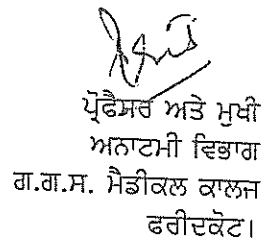 ਪ੍ਰੋਫੈਸਰ ਅਤੇ ਮੁਖੀ
ਅਨਾਟਮੀ ਵਿਭਾਗ
ਗ.ਗ.ਸ. ਮੈਡੀਕਲ ਕਾਲਜ
ਫਰੀਦਕੋਟ।